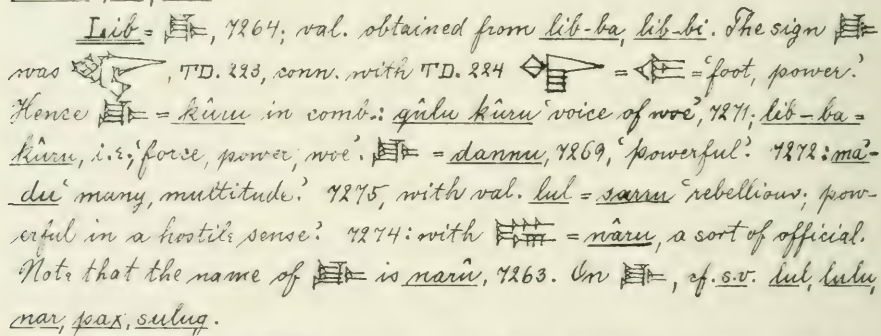 Lib = 𒈜, 7264; val. obtained from lib-ba, lib-bi. The sign 𒈜
was , TD. 223, conn. with TD. 224 = = 'foot, power.'
Hence 𒈜 = kûru in comb.: qûlu kûru 'voice of woe', 7271; lib-ba =
kûru, i.e., 'force, power, woe'. 𒈜 = dannu, 7269, 'powerful'. 7272: ma'-
du 'many, multitude.' 7275, with val. lul = sarru 'rebellious; pow-
erful in a hostile sense.' 7274: with = nâru, a sort of official.
Note that the name of 𒈜 is narû, 7263. On 𒈜, cf. s.v. lul, lulu,
nar, pax, sulug.